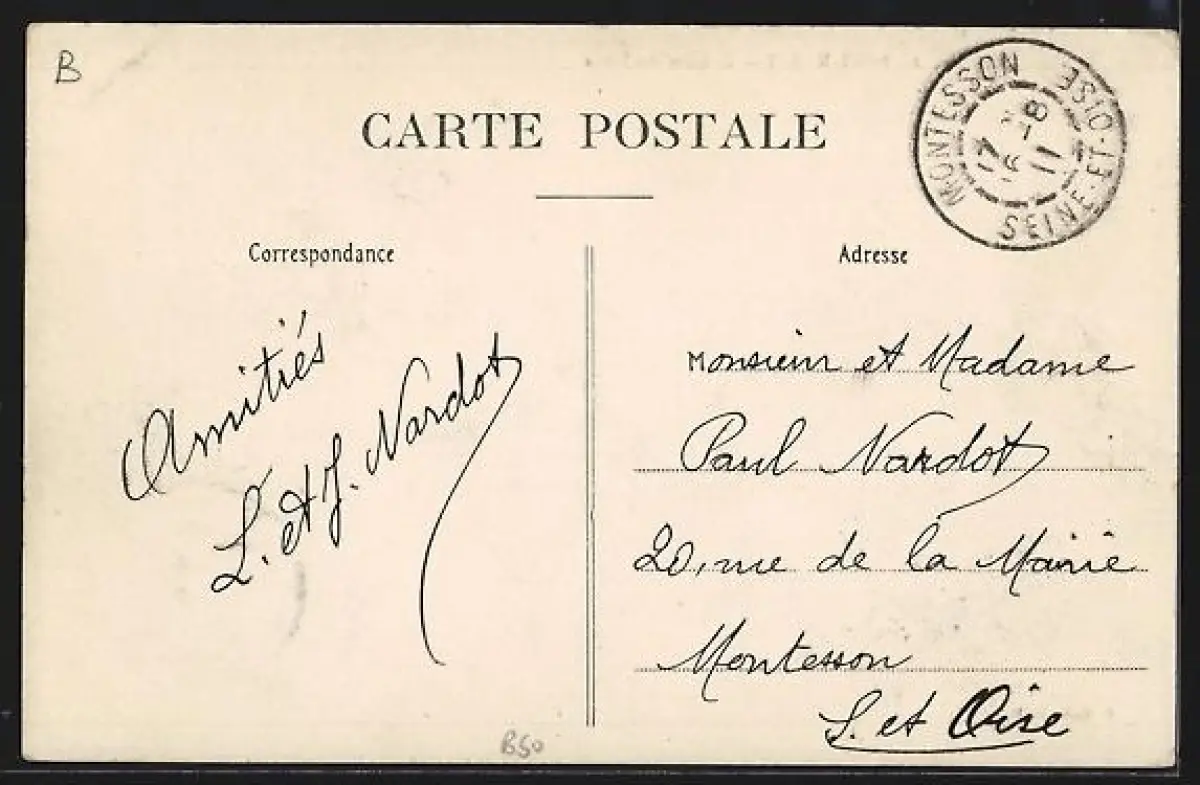 B
CARTE POSTALE
MONTESSON SEINE-ET-OISE
17
-8
11
Correspondance
Amitiés
L. et J. Nardot
Adresse
Monsieur et Madame
Paul Nardot
20, rue de la Mairie
Montesson
S. et Oise
B50